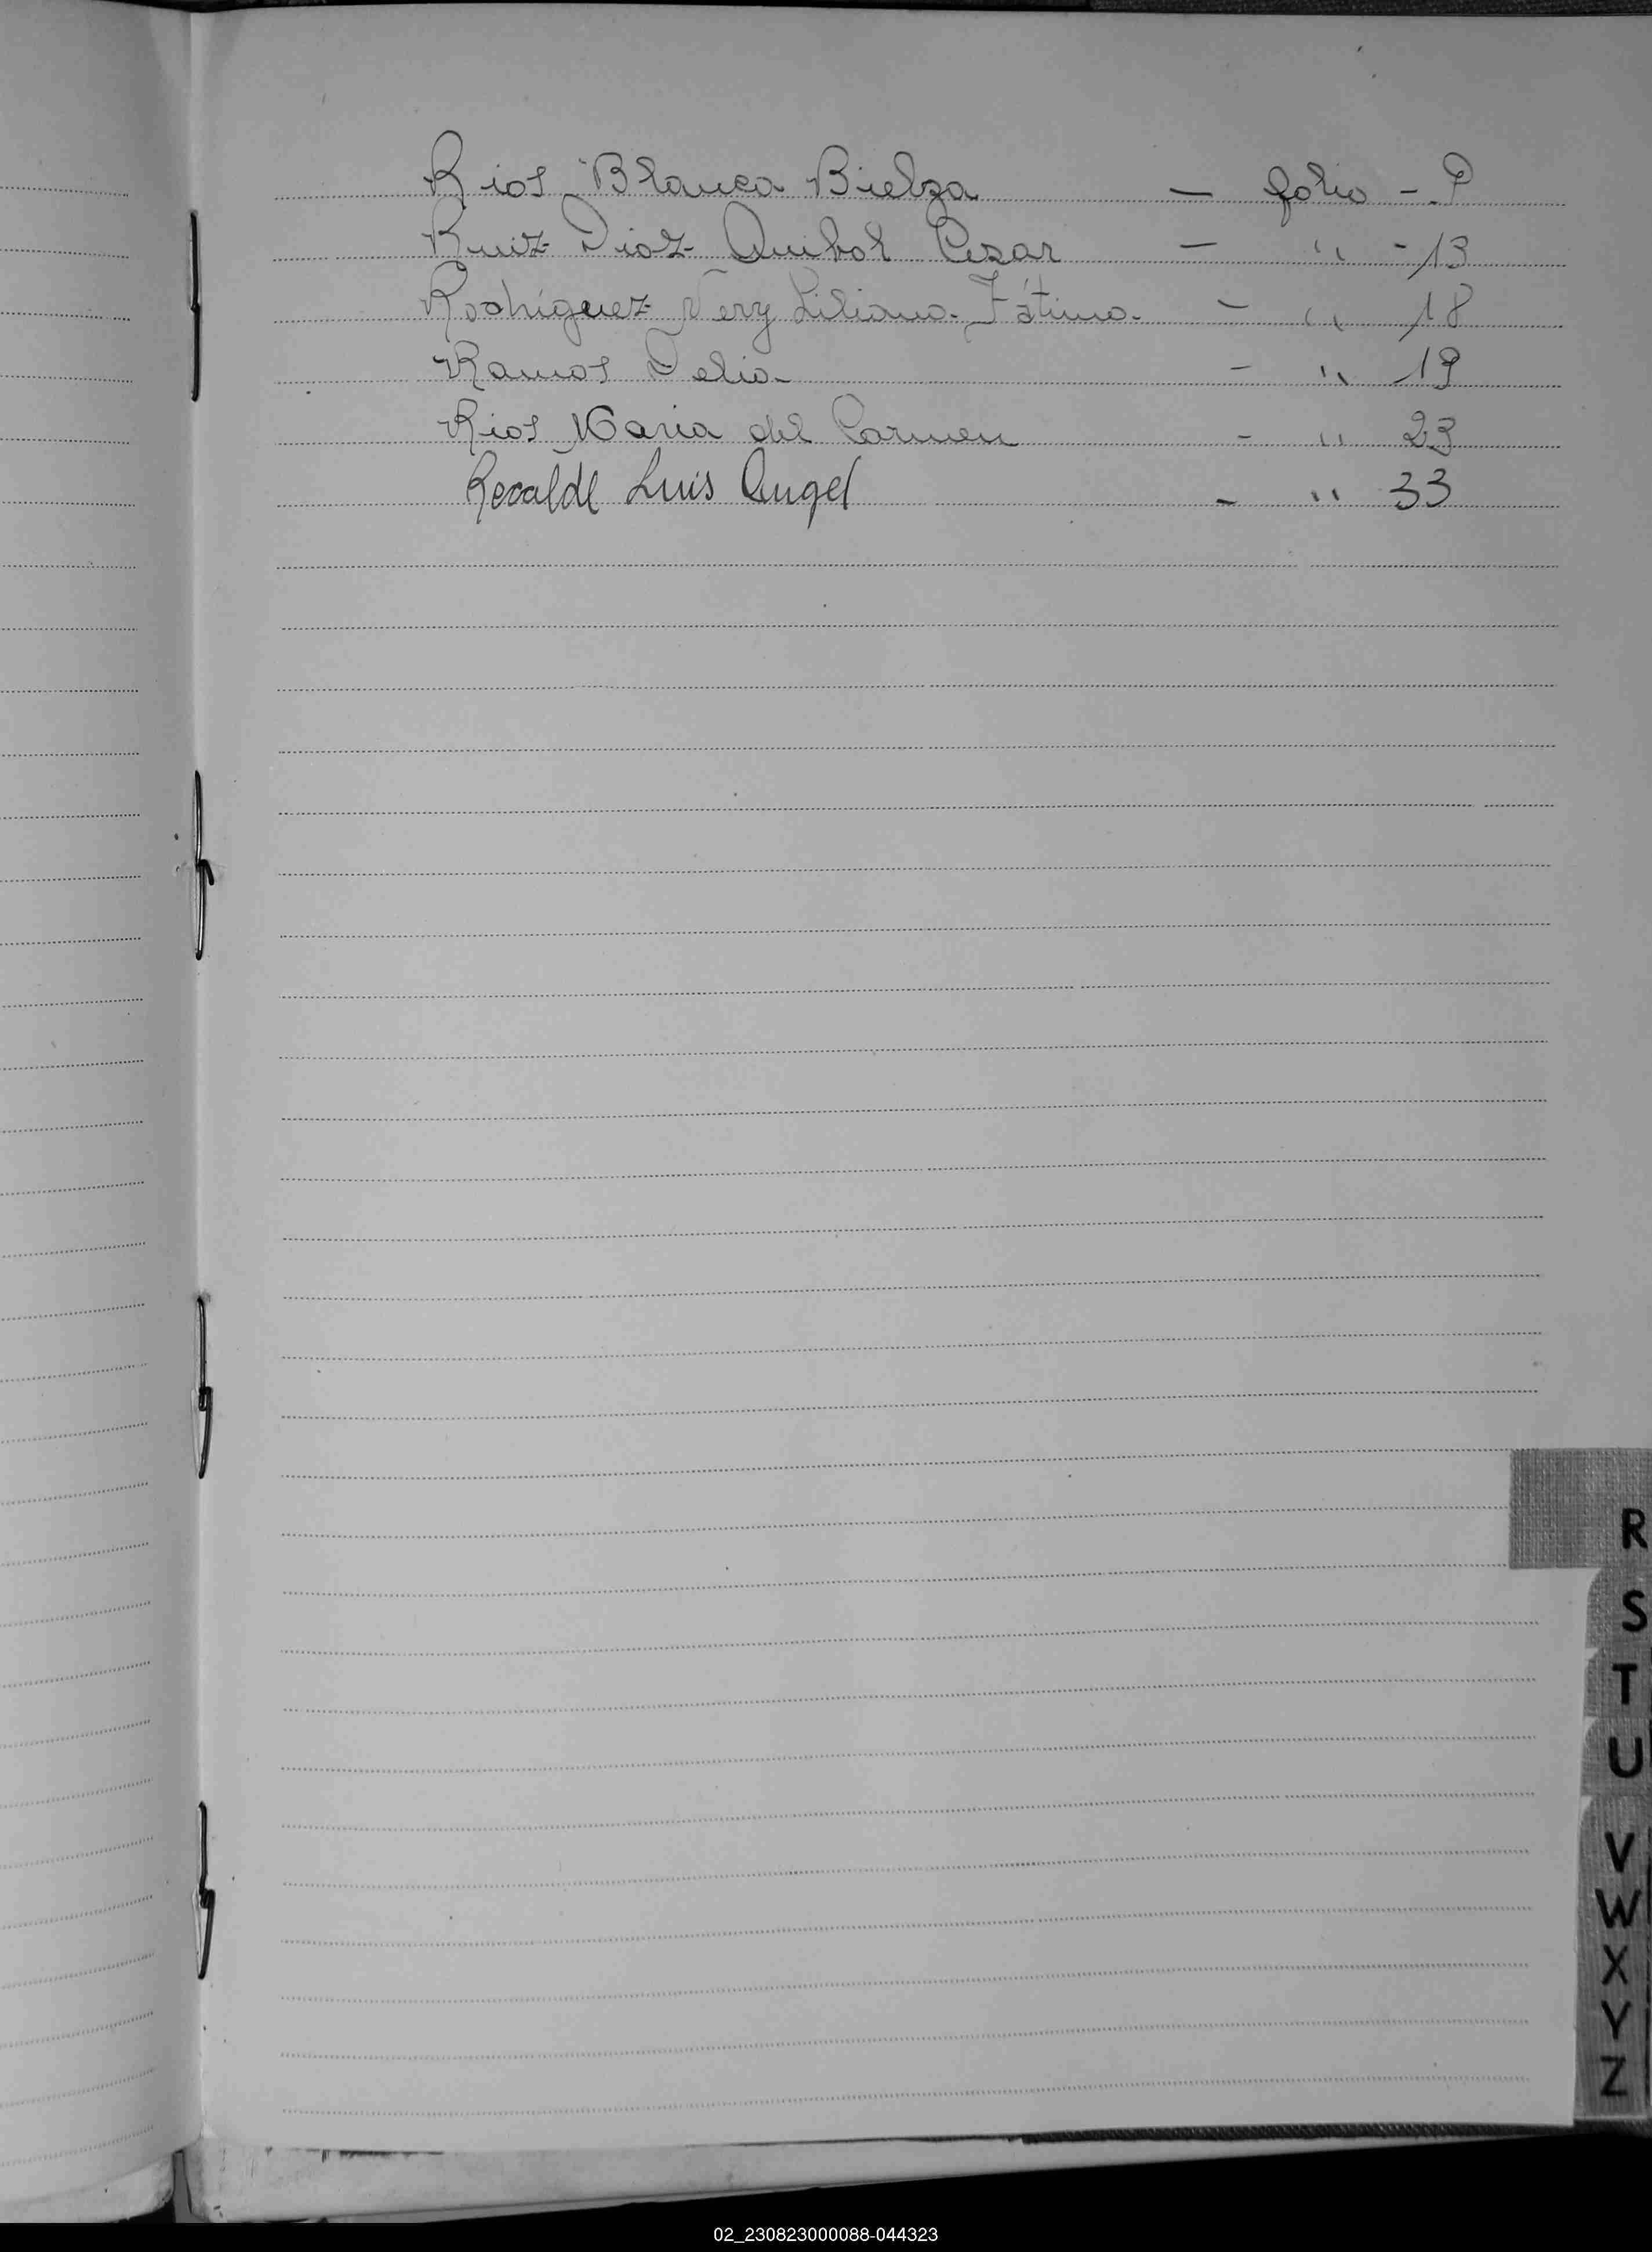 Rios Blanca Bielza — folio - 9
Ruiz Diaz Anibal Cesar — " - 13
Rodriguez Nery Liliana Fátima - " 18
Ramos Delia - " 19
Rios Maria del Carmen - " 23
Recalde Luis Angel - " 33
R
S
T
U
V
W
X
Y
Z
02_230823000088-044323